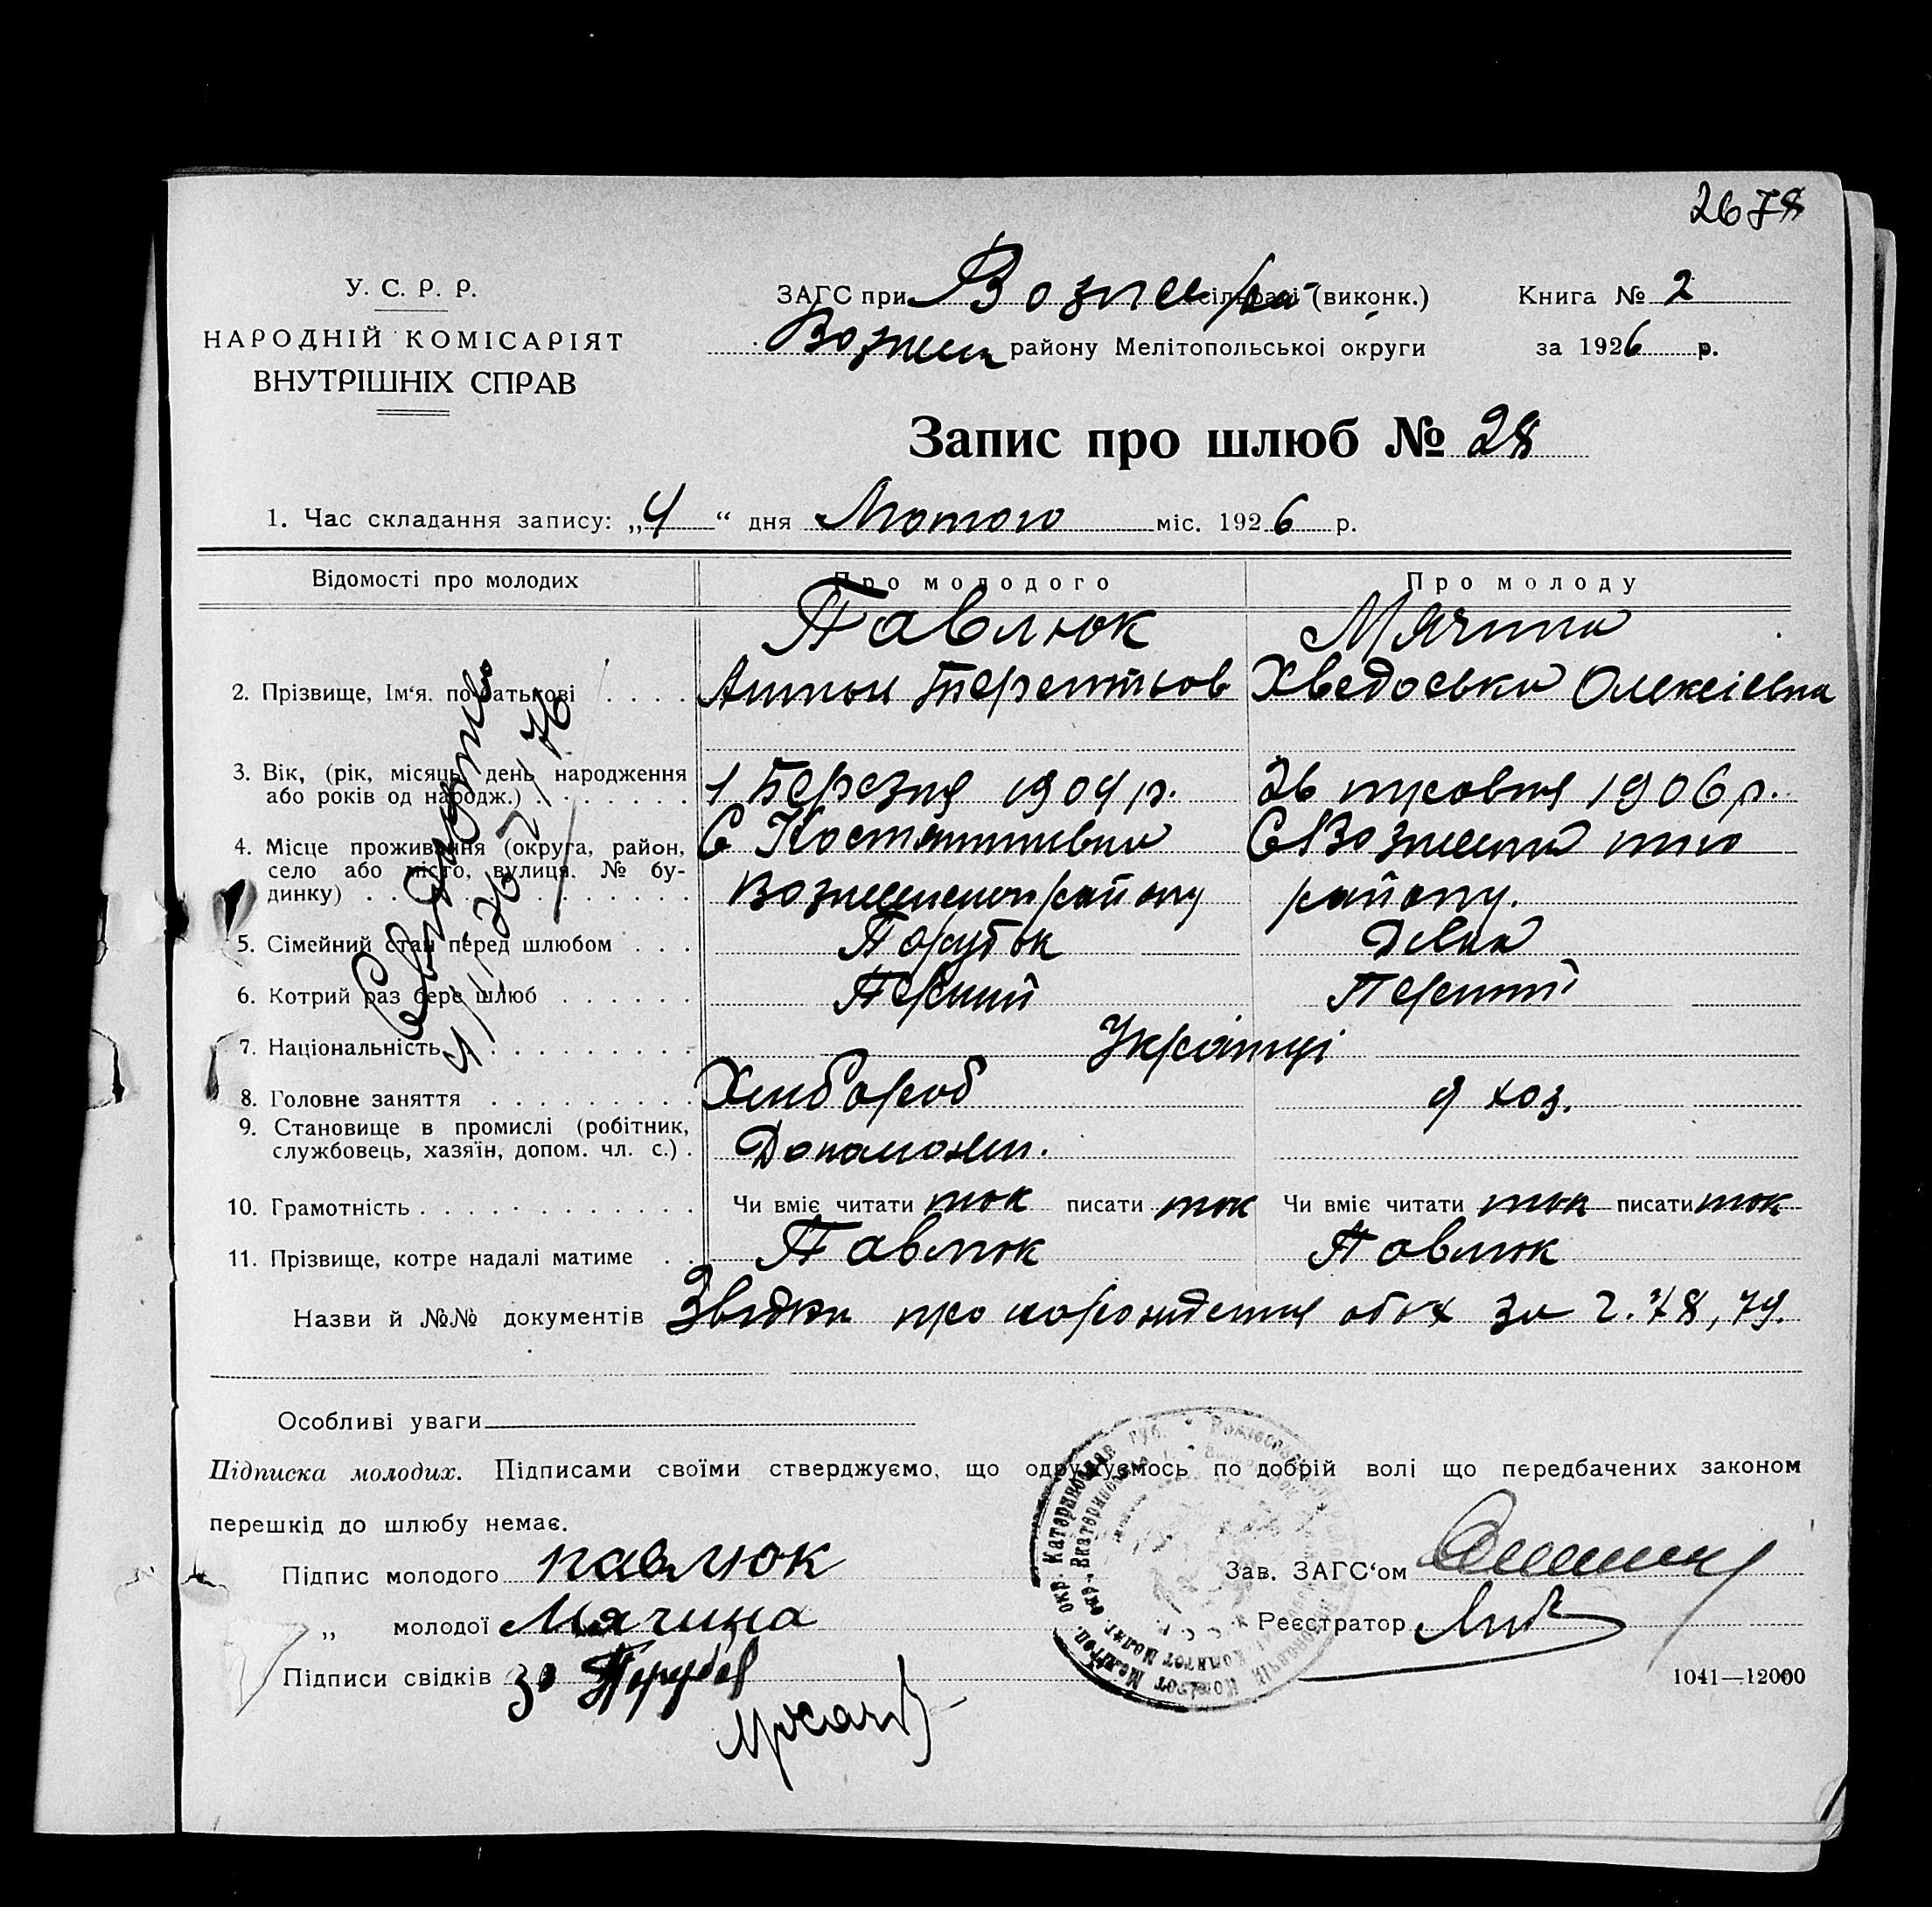 2678
У. С. Р. Р.
НАРОДНІЙ КОМІСАРІЯТ
ВНУТРІШНІХ СПРАВ
ЗАГС при сільраді (виконк.) Книга № 2
району Мелітопольської округи за 1926 р.
Запис про шлюб № 28
1. Час складання запису: „4“ дня Лютого міс. 1926 р.
Відомості про молодих Про молодого Про молоду
Павлюк Мячина
2. Прізвище, Ім'я. по батькові . . . . Антон Терентьов Хведоська Олексіевна
3. Вік, (рік, місяць, день народження
або років од народж.) . . . . . . . 1 Березня 1904 р. 26 травня 1906 р.
4. Місце проживання (округа, район, С Костянтинівка С Вознесенка того
село або місто, вулиця, № бу-
динку) . . . . . . . . . . . . . . району району.
5. Сімейний стан перед шлюбом . . . Парубок Дівка
6. Котрий раз бере шлюб . . . . . . Перший Перший
7. Національність . . . . . . . . . Українці
8. Головне заняття . . . . . . . . . Хлібороб д хоз.
9. Становище в промислі (робітник,
службовець, хазяїн, допом. чл. с.) . Допамогж.
10. Грамотність . . . . . . . . . . . . Чи вміє читати так писати так Чи вміє читати так писати так
11. Прізвище, котре надалі матиме . . Павлюк Павлюк
Назви й №№ документів про обох за ч. 78, 79.
Особливі уваги
Підписка молодих. Підписами своїми стверджуємо, що одружуємось по добрій волі що передбачених законом
перешкід до шлюбу немає.
Підпис молодого павлюк Зав. ЗАГС'ом
„ молодої Мячина Реєстратор
Підписи свідків за
1041—12000